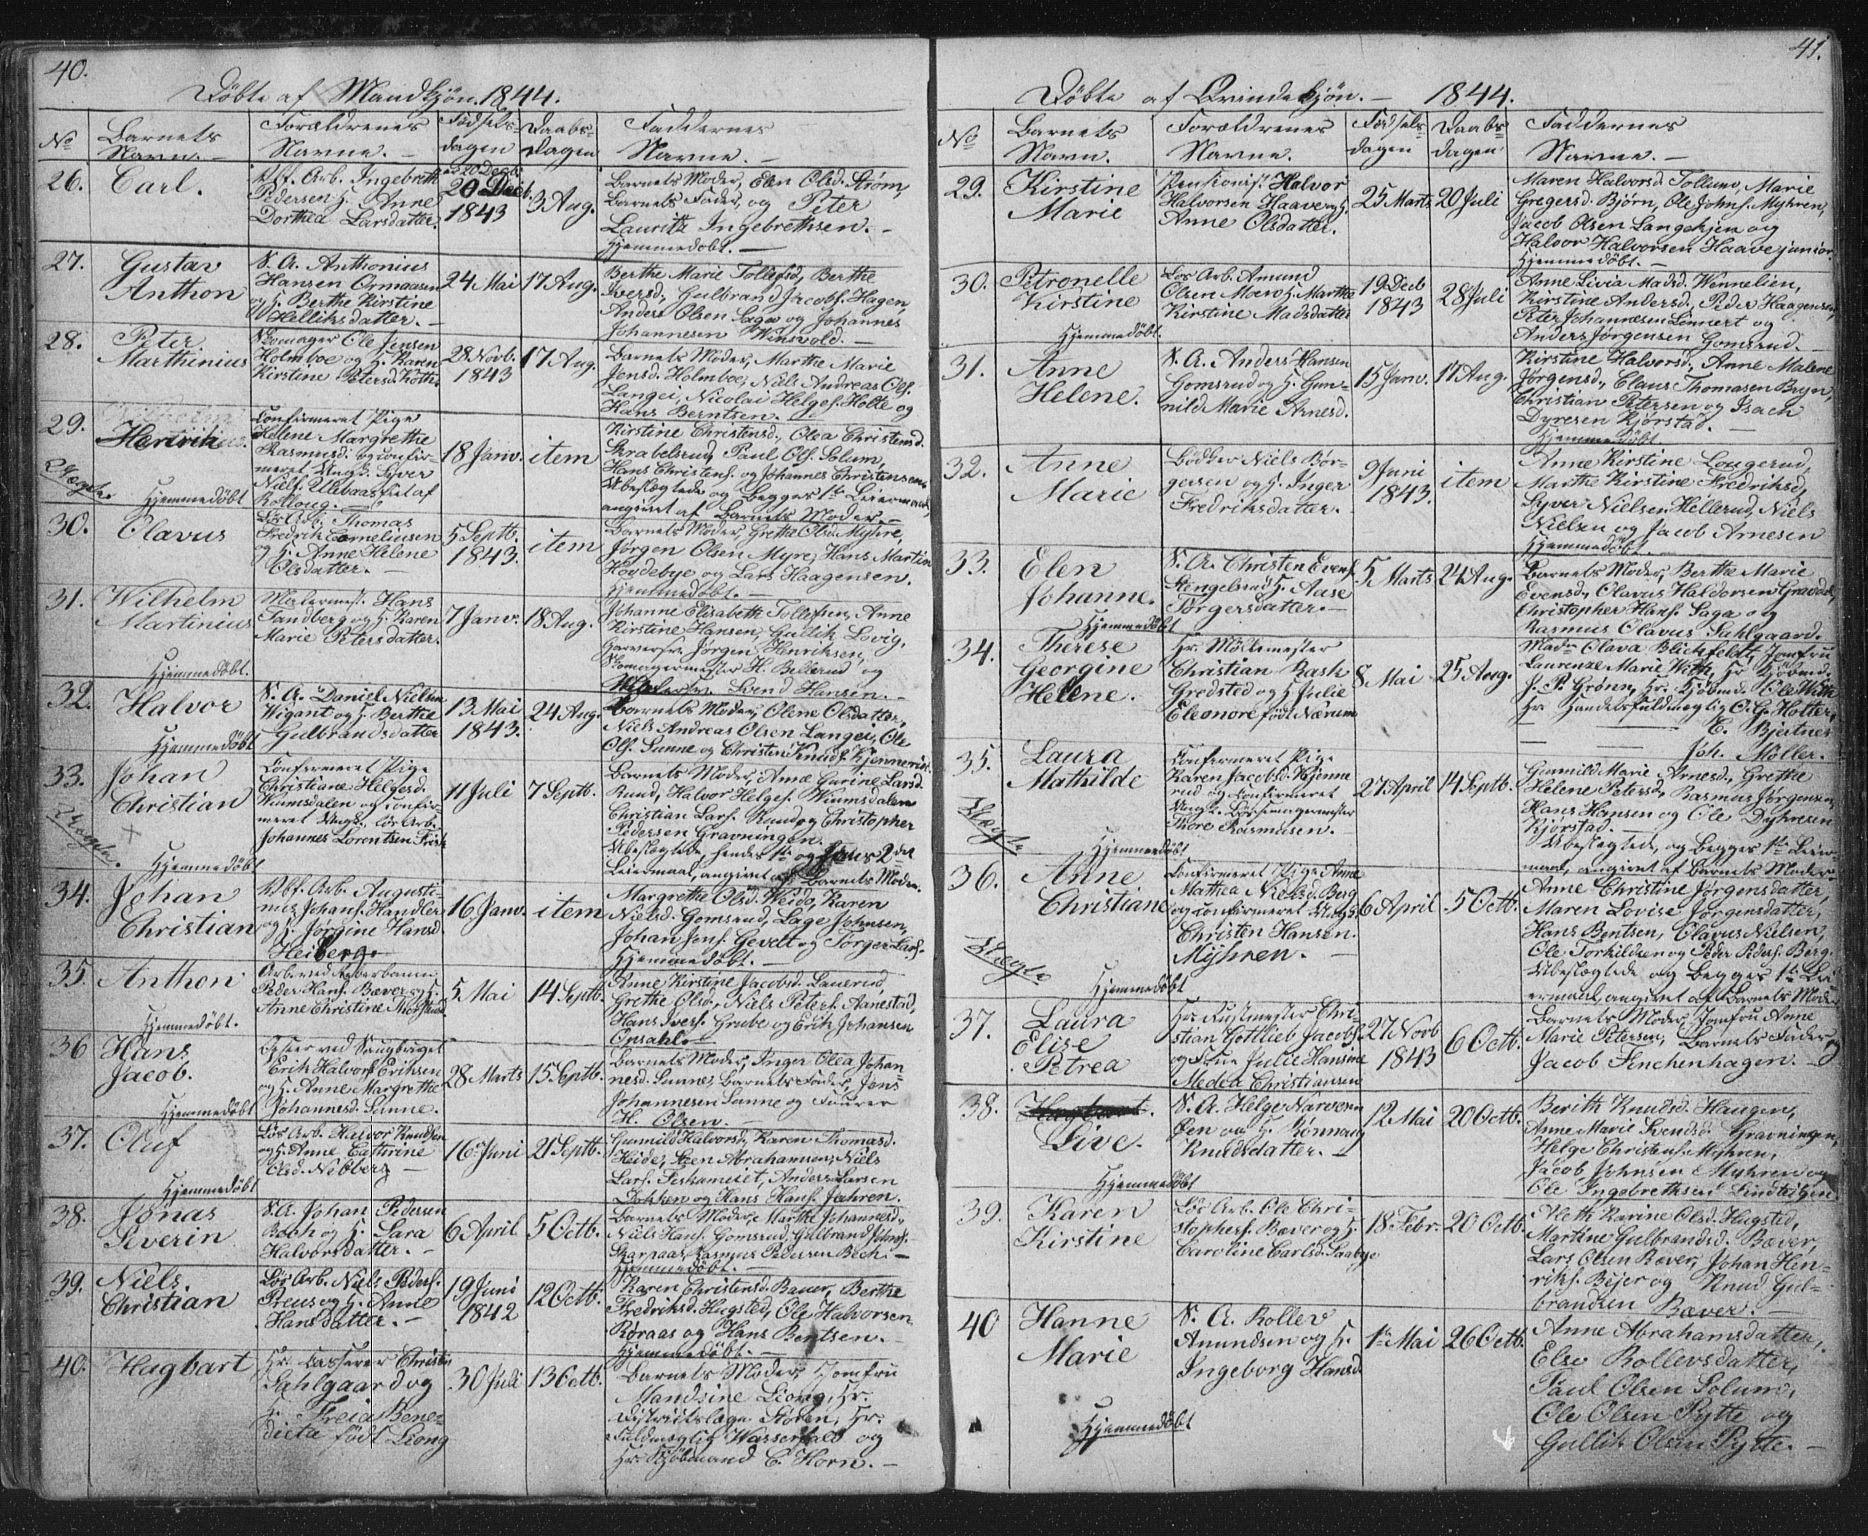 40.
Döbte af Mandkjøn. 1844.
No
Barnets Navn. —
Forældrenes Navne. —
Fødsels-dagen
Daabs-dagen
Faddernes Navne. —
26.
Carl.
Arb. Ingebreth
Pedersen & h. Anne
Dorthea Larsdatter.
20 Decb.
1843
3 Aug.
Barnets Moder, Elen Olsd. Strøm,
Barnets Fader, og Peter
Lauritz Ingebrethsen. —
Hjemmedøbt. —
27.
Gustav
Anthon
S. A. Anthonius
Hansen Ormaasen
og h. Berthe Kirstine
Helliksdatter. —
24 Mai
17 Aug.
Berthe Marie Tollefsd, Berthe
Iversd, Gulbrand Jacobs. Hagen,
Anders Olsen Saga og Johannes
Johannesen Winsvold. —
28.
Peter
Marthinius
Skomager Ole Jensen
Holmboe og h. Karen
Kirstine Petersd.
28 Novb.
1843
17 Aug.
Barnets Moder, Marthe Marie
Jensd. Holmboe, Niels Andreas Ols.
Langei, Nicolai Helges. Holte og
Hans Berntsen. —
29.
2 Uægte
Hjemmedøbt
Confirmeret Pige
Helene Margrethe
Rasmusd. og confir-
meret Ungk. Syver
Niels. Ulevaas
Kolloug. —
18 Janv.
item
Kirstine Christensd., Olea Christensd.
Skrabelsrud, Paul Ols. Solum,
Hans Christens. og Johannes Christensen
Ubeslægtede og begges 1te Leiermaal,
angivet af Barnets Moder. —
30.
Olavus
Thomas
Fredrik Corneliusen
og h. Anne Helene
Olsdatter. —
5 Septb.
1843.
item
Barnets Moder, Grethe Olsd. Myhre,
Jørgen Olsen Myre, Hans Martin
Hovdebye og Lars Haagensen.
Hjemmedøbt. —
31.
Wilhelm
Martinius
Hjemmedøbt.
Malermest. Hans
Sandberg og h. Karen
Marie Petersdatter.
7 Janv.
18 Aug.
Johanne Elisabeth Tollefsen, Anne
Kirstine Hansen, Gullik Lovig,
Garversv. Jørgen Henriksen,
Skomagermester H. Bellerud og
Svend Hansen. —
32.
Halvor
Hjemmedøbt
S. A. Daniel Nielsen
Wigant og h. Berthe
Gulbrandsdatter
13 Mai
1843.
24 Aug.
Barnets Moder, Olene Olsdatter,
Niels Andreas Olsen Langei, Ole
Ols. Sunne og Christen Knuds. Kjennerud.
33.
Johan
Christian
2 Uægte.
Hjemmedøbt
Confirmeret Pige
Christiane Helgesd.
Wiumsdalen og confir-
meret Ungk. Løs Arb.
Johannes Lorentsen Frisk
11 Juli
7 Septb.
Barnets Moder, Anne Gurine Larsd.
Ruud, Halvor Helges. Wiumsdalen
Christian Lars. Ruud og Christopher
Pedersen Gravningen.
Ubeslægtede, hendes 1te og hans 2det
Leiermaal, angivet af Barnets Moder.
34.
Johan
Christian
Arb. Augusti-
nus Johans. Handler
og h. Jørgine Hansd
Heiberg
16 Janv.
item
Margrethe Olsd. Weida, Karen
Nielsd. Gomsrud, Lage Johnsen,
Johan Jens. Gevelt og Torger Lars.
Hjemmedøbt. —
35.
Anthon
Hjemmedøbt.
Arb. ved
Peder Hans. Bæver og h.
Anne Christine
5 Mai
14 Septb.
Anne Kirstine Jacobsd.
Grethe Olsd., Niels Peters. Aanestad,
Hans Ivers. Grube og Erik Johansen
Opsahl
36
Hans
Jacob.
Hjemmedøbt
Erik Halvors. Eriksen
og h. Anne Margrethe
Johannesd. Sunne.
28 Marts
15 Septb.
Barnets Moder, Inger Olea Johan-
nesd. Sunne, Barnets Fader, Jens
Johannesen Sunne og Fourer
H. Olsen. —
37.
Oluf
Hjemmedøbt
Løs Arb. Halvor Knudsen
og h. Anne Cathrine
Olsd. Nibberg —
16 Juni
21 Septb.
Gunnild Halvorsd, Karen Thomasd.
Heide, Steen Abrahamsen, Niels
Lars. Anders Larsen
Dokken og Hans Hans. Jahren.
38.
Jonas
Severin
S. A. Johan Pedersen
og h. Sara
Halvorsdatter. —
6 April
5 Octb.
Barnets Moder, Marthe Johannesd.,
Niels Hans. Gomsrud, Gulbrand Johns.
Skarpaas, Rasmus Pedersen Bech. —
Hjemmedøbt. —
39.
Niels
Christian
Løs Arb. Niels Peders.
Preus og h. Anne
Hansdatter. —
19 Juni
1842
12 Octb.
Karen Christensd. Bauer, Berthe
Fredriksd. Hugsted, Ole Halvorsen
Røraas og Hans Bentsen. —
Hjemmedøbt. —
40.
Hagbart
Hr. Casserer Christen
Sahlgaard og
h. Freia Bene-
dicta født Leong
30 Juli
13 Octb.
Barnets Moder, Jomfru
Mandsine Leong, Hr.
Districtslæge Støren, Hr.
Fuldmægtig Wasserfald og
Hr. Kjøbmand C. Horn. —
41.
Döbte af Qvindekjøn. — 1844.
No
Barnets Navn.
Forældrenes Navne. —
Fødsels-dagen
Daabs-dagen
Faddernes Navne. —
29.
Kirstine
Marie
Pensionist Halvor
Halvorsen Haave og h.
Anne Olsdatter.
25 Marts
20 Juli
Maren Halvorsd. Tollum, Marie
Gregersd. Bjørn, Ole Johns. Myhren,
Jacob Olsen Langehjen og
Halvor Halvorsen Haave junior.
Hjemmedøbt. —
30.
Petronelle
Kirstine
Hjemmedøbt
Løs Arb. Amund
Olsen Moen & h. Marthe
Kirstine Madsdatter
19 Decb
1843
28 Juli
Anne Livia Madsd. Wennelien,
Kirstine Andersd., Peder Haagensen,
Peter Johannesen Linnert og
Anders Jørgensen Gomsrud.
31.
Anne
Helene.
S. A. Anders Hansen
Gomsrud og h. Gun-
nild Marie Arnesd.
15 Janv.
17 Aug.
Kirstine Halvorsd, Anne Malene
Jørgensd., Claus Thomasen Bryn,
Christian Petersen og Isach
Dyresen Kjørstad. —
Hjemmedøbt
32.
Anne
Marie
Bødker Niels Bør-
gersen og h. Inger
Fredriksdatter. —
9 Juni
1843.
item
Anne Kirstine Lougerud,
Marthe Kirstine Fredriksd,
Syver Nielsen Hellerud, Niels
Nielsen og Jacob Arnesen
Hjemmedøbt. —
33.
Elen
Johanne.
Hjemmedøbt
S. A. Christen Evens.
Hengelsrud & h. Aase
Torgersdatter. —
5 Marts
24 Aug.
Barnets Moder, Berthe Marie
Evensd, Olavus Haldorsen Gravdal,
Christopher Hans. Saga og
Rasmus Olavus Sahlgaard.
34.
Therese
Georgine
Helene.
Hr. Møllemester
Christian Rask
Grødsted og h. Julie
Eleonore født Nærum
8 Mai
25 Aug.
Madm Olava Blichfeldt, Jomfru
Laurenze Marie Woth, Hr. Kjøbmd.
J. P. Grønn, Hr. Kjøbmd. Ole Witte
Hr. Handelsfuldmægtig C. G. Holter,
— — C. Bjertnes
— — Joh. Møller. —
35.
Laura
Mathilde
Uægte
Hjemmedøbt
Confirmeret Pige
Karen Jacobsd. Kjenne-
rud og confirmeret
Ungk. Børsemagermester
Thore Rasmusen. —
27 April
14 Septb.
Gunnild Marie Arnesd, Grethe
Helene Petersd, Rasmus Jørgensen,
Hans Hansen og Ole Dyhresen
Kjørstad. —
Ubeslægtede, og begges 1te Leier-
maal, angivet af Barnets Moder.
36.
Anne
Christiane
Uægte
Hjemmedøbt
Confirmeret Pige Anne
Mathea Nielsd. Berg
og confirmeret Ungk.
Christen Hansen
Myhren. —
6 April
5 Octb.
Anne Christine Jørgensdatter,
Maren Lovise Jørgensdatter,
Hans Bentsen, Olavus Nielsen,
Ole Torkildsen og Peder Peders. Berg.
Ubeslægtede og begges 1te Lei-
ermaal, angivet af Barnets Moder
37.
Laura
Elise
Petrea
Hr. Rustmester Chri-
stian Gottlieb Jacobs.
og Frue Julie Hansine
Medea Christiansen
27 Novb
1843
6 Octb.
Barnets Moder, Jomfru Anne
Marie Petersen, Barnets Fader og
Jacob Finchenhagen. —
38.
Live.
Hjemmedøbt
S. A. Helge Narvesen
og h. Rønnaug
Knudsdatter. —
12 Mai
20 Octb.
Berith Knudsd. Haugen,
Anne Marie Svendsd. Gravningen,
Helge Christens. Myhren,
Jacob Johnsen Myhren og
Ole Ingebrethsen Lindteigen.
39.
Karen
Kirstine
Løs Arb. Ole Chri-
stophers. Bæver og h.
Caroline Carlsd. Saabye
18 Febr.
20 Octb.
Aleth Karine Olsd. Hugsted,
Martine Gulbrandsd. Bæver,
Lars Olsen Bæver, Johan Hen-
riks. Bejer og Knud Gul-
brandsen Bæver. —
40
Hanne
Marie
Hjemmedøbt
S. A. Rollev
Amundsen og h.
Ingeborg Hansd.
1te Mai
26 Octb.
Anne Abrahamsdatter,
Else Rollevsdatter,
Paul Olsen Solum,
Ole Olsen Pytte og
Gullik Olsen Pytte. —